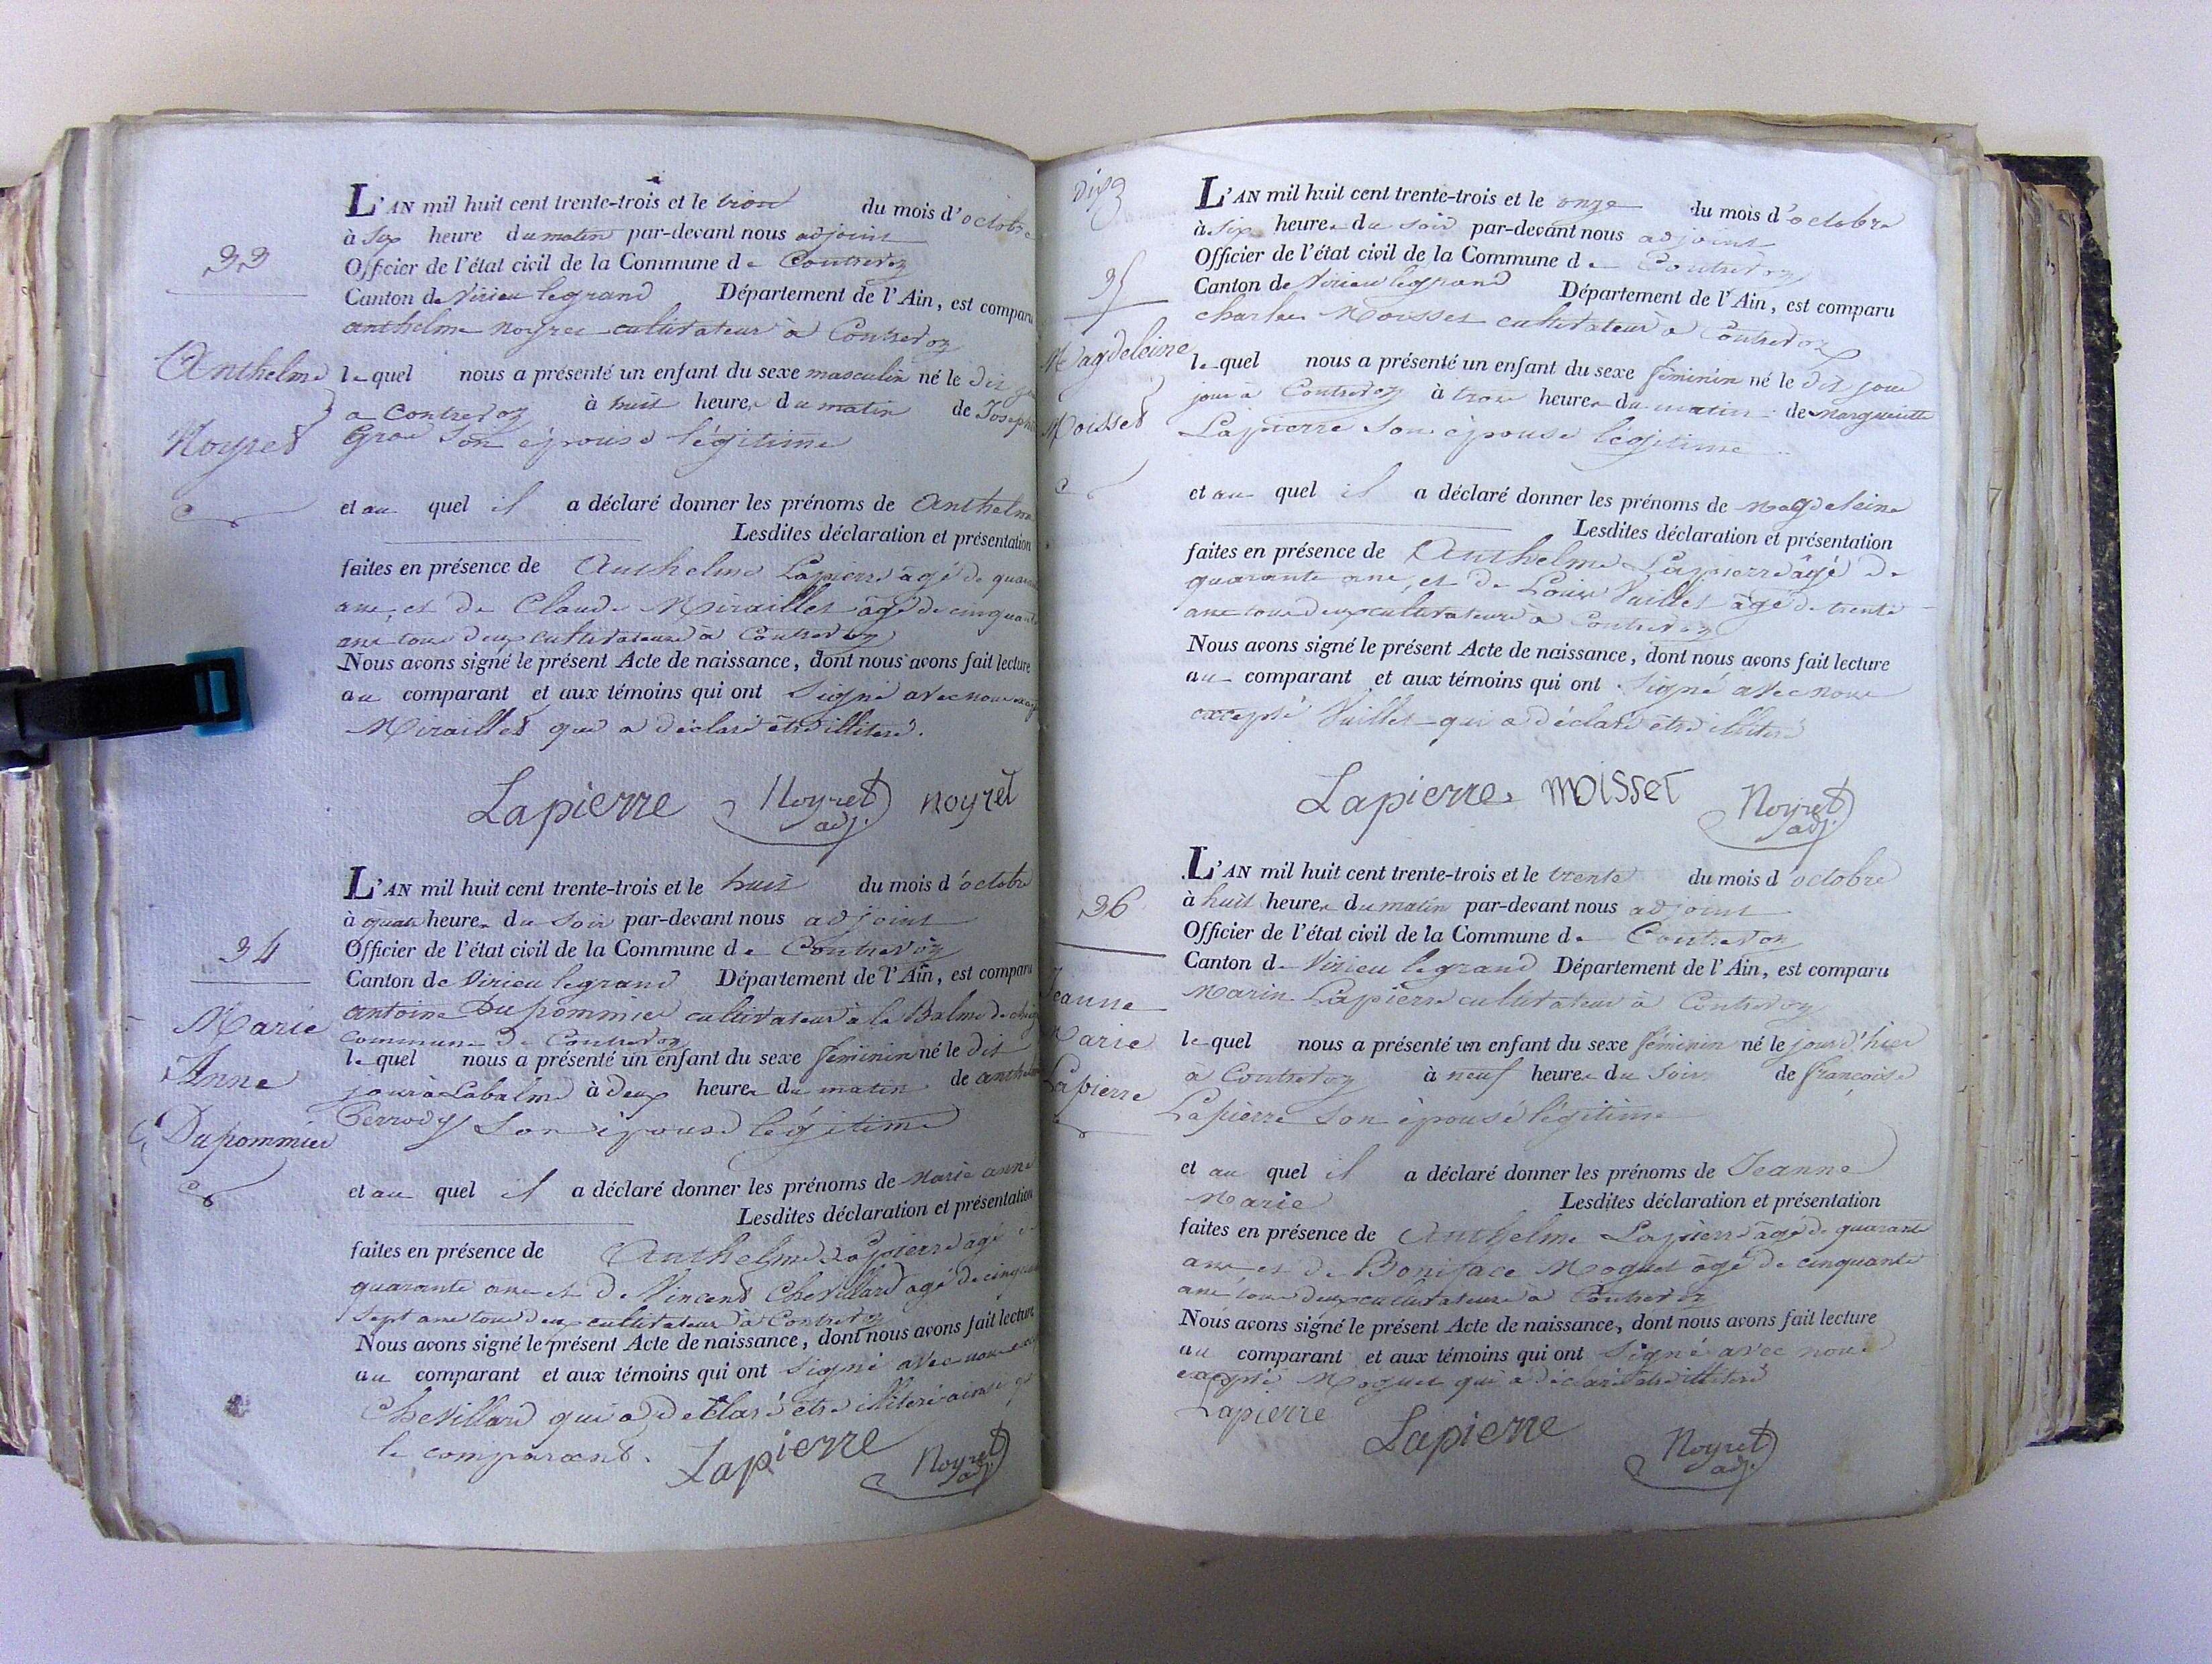 33
Anthelme
Noyret
L'AN mil huit cent trente-trois et le trois du mois d'octobre
à six heure du matin par-devant nous adjoint
Officier de l'état civil de la Commune de Contrevoz
Canton de Virieu legrand Département de l'Ain, est comparu
anthelme noyret cultivateur à Contrevoz
lequel nous a présenté un enfant du sexe masculin né le dit jour
a Contrevoz à huit heures du matin de Josephte
Gros son épouse légitime
et au quel il a déclaré donner les prénoms de Anthelme
Lesdites déclaration et présentation
faites en présence de Anthelme Lapierre âgé de quarante
ans, et de Claude Miraillet âgé de cinquante
ans tous deux cultivateurs à Contrevoz
Nous avons signé le présent Acte de naissance, dont nous avons fait lecture
au comparant et aux témoins qui ont signé avec nous
Miraillet qui a déclaré être illitéré.
Lapierre Noyret adj. noyret
34
Marie
Anne
Dupommier
L'AN mil huit cent trente-trois et le huit du mois d'octobre
à quatre heures du soir par-devant nous adjoint
Officier de l'état civil de la Commune de Contrevoz
Canton de Virieu legrand Département de l'Ain, est comparu
antoine Dupommier cultivateur à la Balme de
commune de Contrevoz
lequel nous a présenté un enfant du sexe féminin né le dit
jour à Labalme à deux heures du matin de
Perrody son épouse légitime
et au quel il a déclaré donner les prénoms de Marie anne
Lesdites déclaration et présentation
faites en présence de Anthelme Lapierre agé de
quarante ans et de Vincent Chevillard agé de cinquante
sept ans tous deux cultivateurs à Contrevoz
Nous avons signé le présent Acte de naissance, dont nous avons fait lecture
au comparant et aux témoins qui ont signé avec nous
Chevillard qui a déclaré être illitéré ainsi que
le comparant.
Lapierre Noyret adj.
35
Magdeleine
Moisset
L'AN mil huit cent trente-trois et le onze du mois d'octobre
à six heures du soir par-devant nous adjoint
Officier de l'état civil de la Commune de Contrevoz
Canton de Virieu legrand Département de l'Ain, est comparu
charles Moisset cultivateur à Contrevoz
lequel nous a présenté un enfant du sexe féminin né le dit jour
jour à Contrevoz à trois heures du matin de Marguerite
Lapierre son épouse légitime
et au quel il a déclaré donner les prénoms de Magdeleine
Lesdites déclaration et présentation
faites en présence de Anthelme Lapierre âgé de
quarante ans, et de Louis Vuillet âgé de trente
ans tous deux cultivateurs à Contrevoz
Nous avons signé le présent Acte de naissance, dont nous avons fait lecture
au comparant et aux témoins qui ont signé avec nous
excepté Vuillet qui a déclaré être illitéré
Lapierre moisset Noyret adj.
36
Jeanne
Marie
Lapierre
L'AN mil huit cent trente-trois et le trente du mois d'octobre
à huit heures du matin par-devant nous adjoint
Officier de l'état civil de la Commune de Contrevoz
Canton de Virieu legrand Département de l'Ain, est comparu
Marin Lapierre cultivateur à Contrevoz
lequel nous a présenté un enfant du sexe féminin né le jour d'hier
a Contrevoz à neuf heures du soir de françoise
Lapierre son épouse légitime
et au quel il a déclaré donner les prénoms de Jeanne
Marie Lesdites déclaration et présentation
faites en présence de Anthelme Lapierre âgé de quarante
ans et de Boniface Moguet âgé de cinquante
ans tous deux cultivateurs à Contrevoz
Nous avons signé le présent Acte de naissance, dont nous avons fait lecture
au comparant et aux témoins qui ont signé avec nous
excepté Moguet qui a déclaré être illitéré
Lapierre Lapierre Noyret adj.